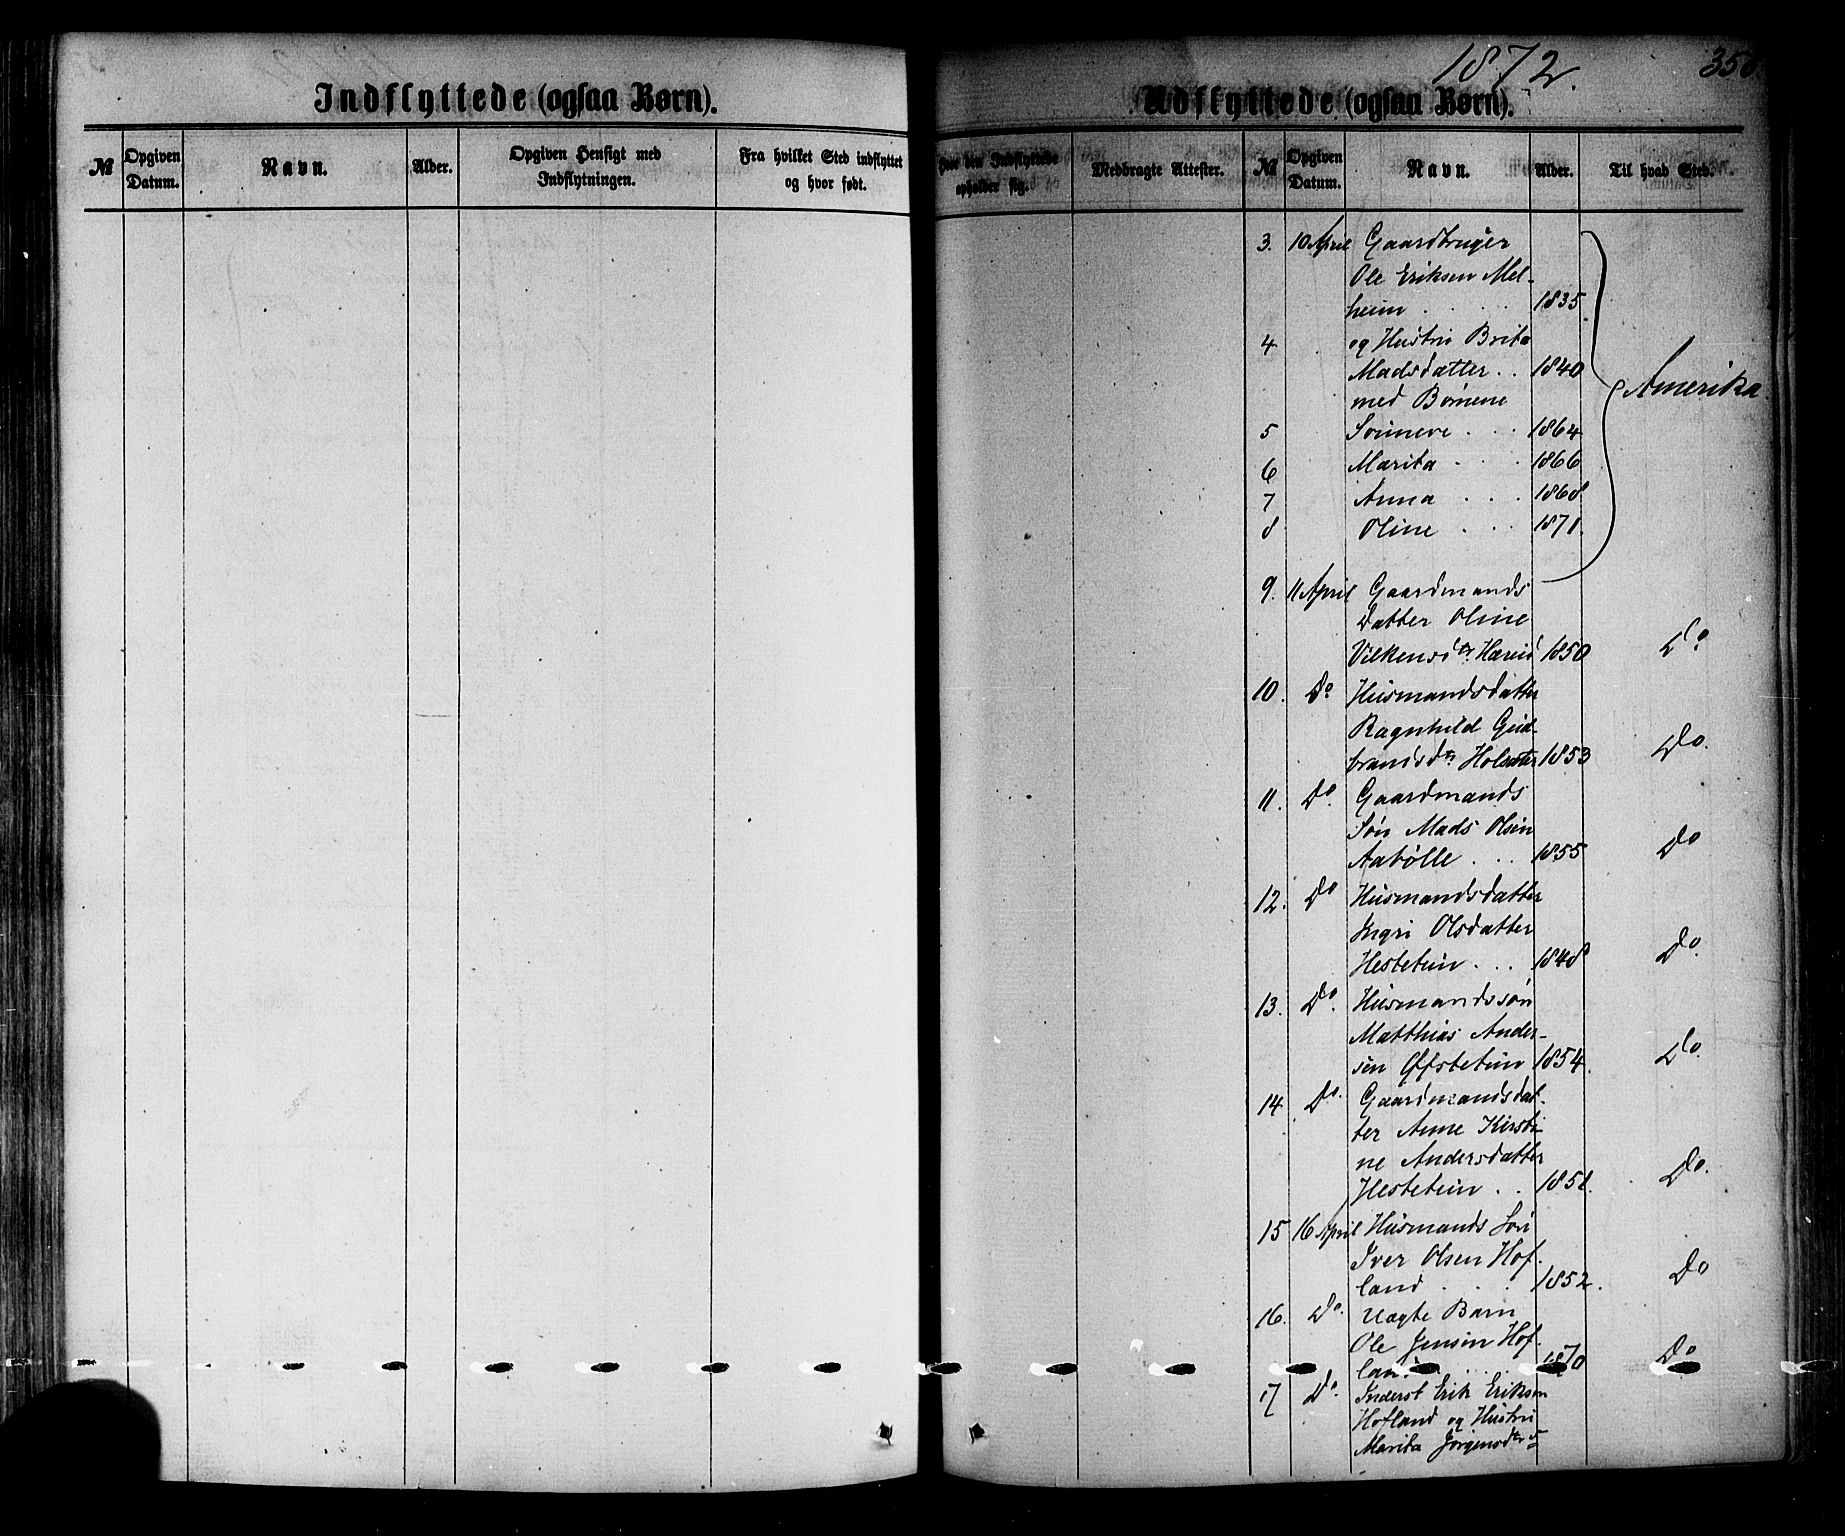 1872.
Indflyttede (ogsaa Børn).
№
Opgiven Datum.
Navn.
Alder.
Opgiven Hensigt med Indflytningen.
Fra hvilket Sted indflyttet og hvor født.
Udflyttede (ogsaa Børn).
Hvor den Indflyttede opholder sig.
Medbragte Attester.
№
Opgiven Datum.
Navn.
Alder.
Til hvad Sted.
3. 10 April Gaardbruger
Ole Eriksen Mel-
heim . . . 1835
4 og Hustru Brita
Madsdatter . . 1840
med Børnene
Amerika.
5 Synneve . . . 1864
6 Marita . . . 1866
7 Anna . . . 1868
8 Oline . . . 1871.
9. 11 April Gaardmands
Datter Oline
Vilkensdtr. 1850 Do.
10. Do Husmandsdatter
Ragnhild Gud-
brandsdtr Holsæter 1853 Do.
11. Do. Gaardmands
Søn Mads Olsen
Aabølle . . . 1855 Do
12. Do Husmandsdatter
Ingri Olsdatter
Hestetun . . . 1848 Do.
13. Do. Husmandssøn
Matthias Ander-
sen Øfstetun 1854. Do.
14 Do. Gaardmandsdat-
ter Anne Kirsti-
ne Andersdatter
Hestetun . . 1851. Do.
15 16 April Husmands Søn
Iver Olsen Hof-
land . . . 1852. Do
16. Do. Uægte Barn
Ole Jensen Hof-
land . . . 1870 Do
17 Do. Inderst Erik Eriksen
Hofland og Hustru
Marita Jørgensdtr